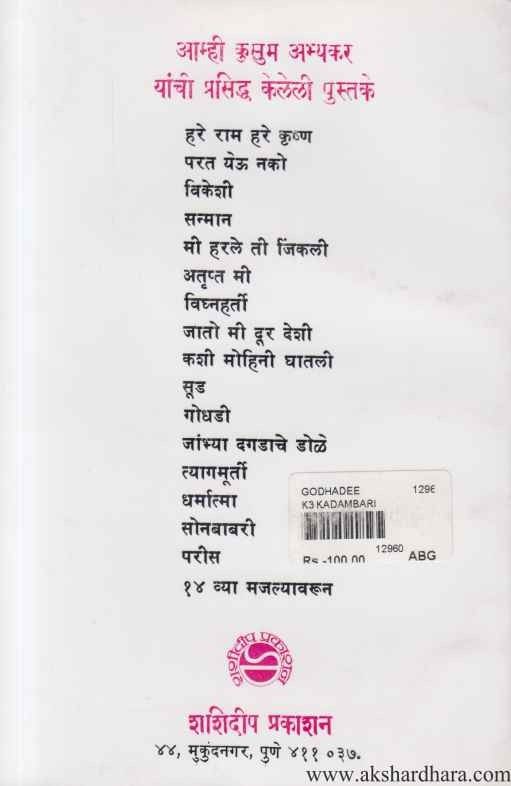 आम्ही कुसुम अभ्यकर
यांची प्रसिद्ध केलेली पुस्तके
हरे राम हरे कृष्ण
परत येऊ नको
विकेशी
सन्मान
मी हरले ती जिंकली
अतृप्त मी
विघ्नहर्ती
जातो मी दूर देशी
कशी मोहिनी घातली
सूड
गोधडी
जांभ्या दगडाचे डोळे
त्यागमूर्ती
धर्मात्मा
सोनबाबरी
परीस
१४ व्या मजल्यावरून
GODHADEE 1296
K3 KADAMBARI
12960
Rs.-100.00 ABG
शशीदीप प्रकाशन
शशिदीप प्रकाशन
४४, मुकुंदनगर, पुणे ४११ ०३७.
www.akshardhara.com